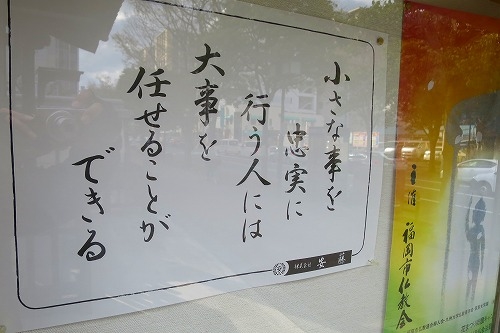 小さな事を
忠実に
行う人には
大事を
任せることが
できる
株式会社 安藤
主催
福岡市仏教会